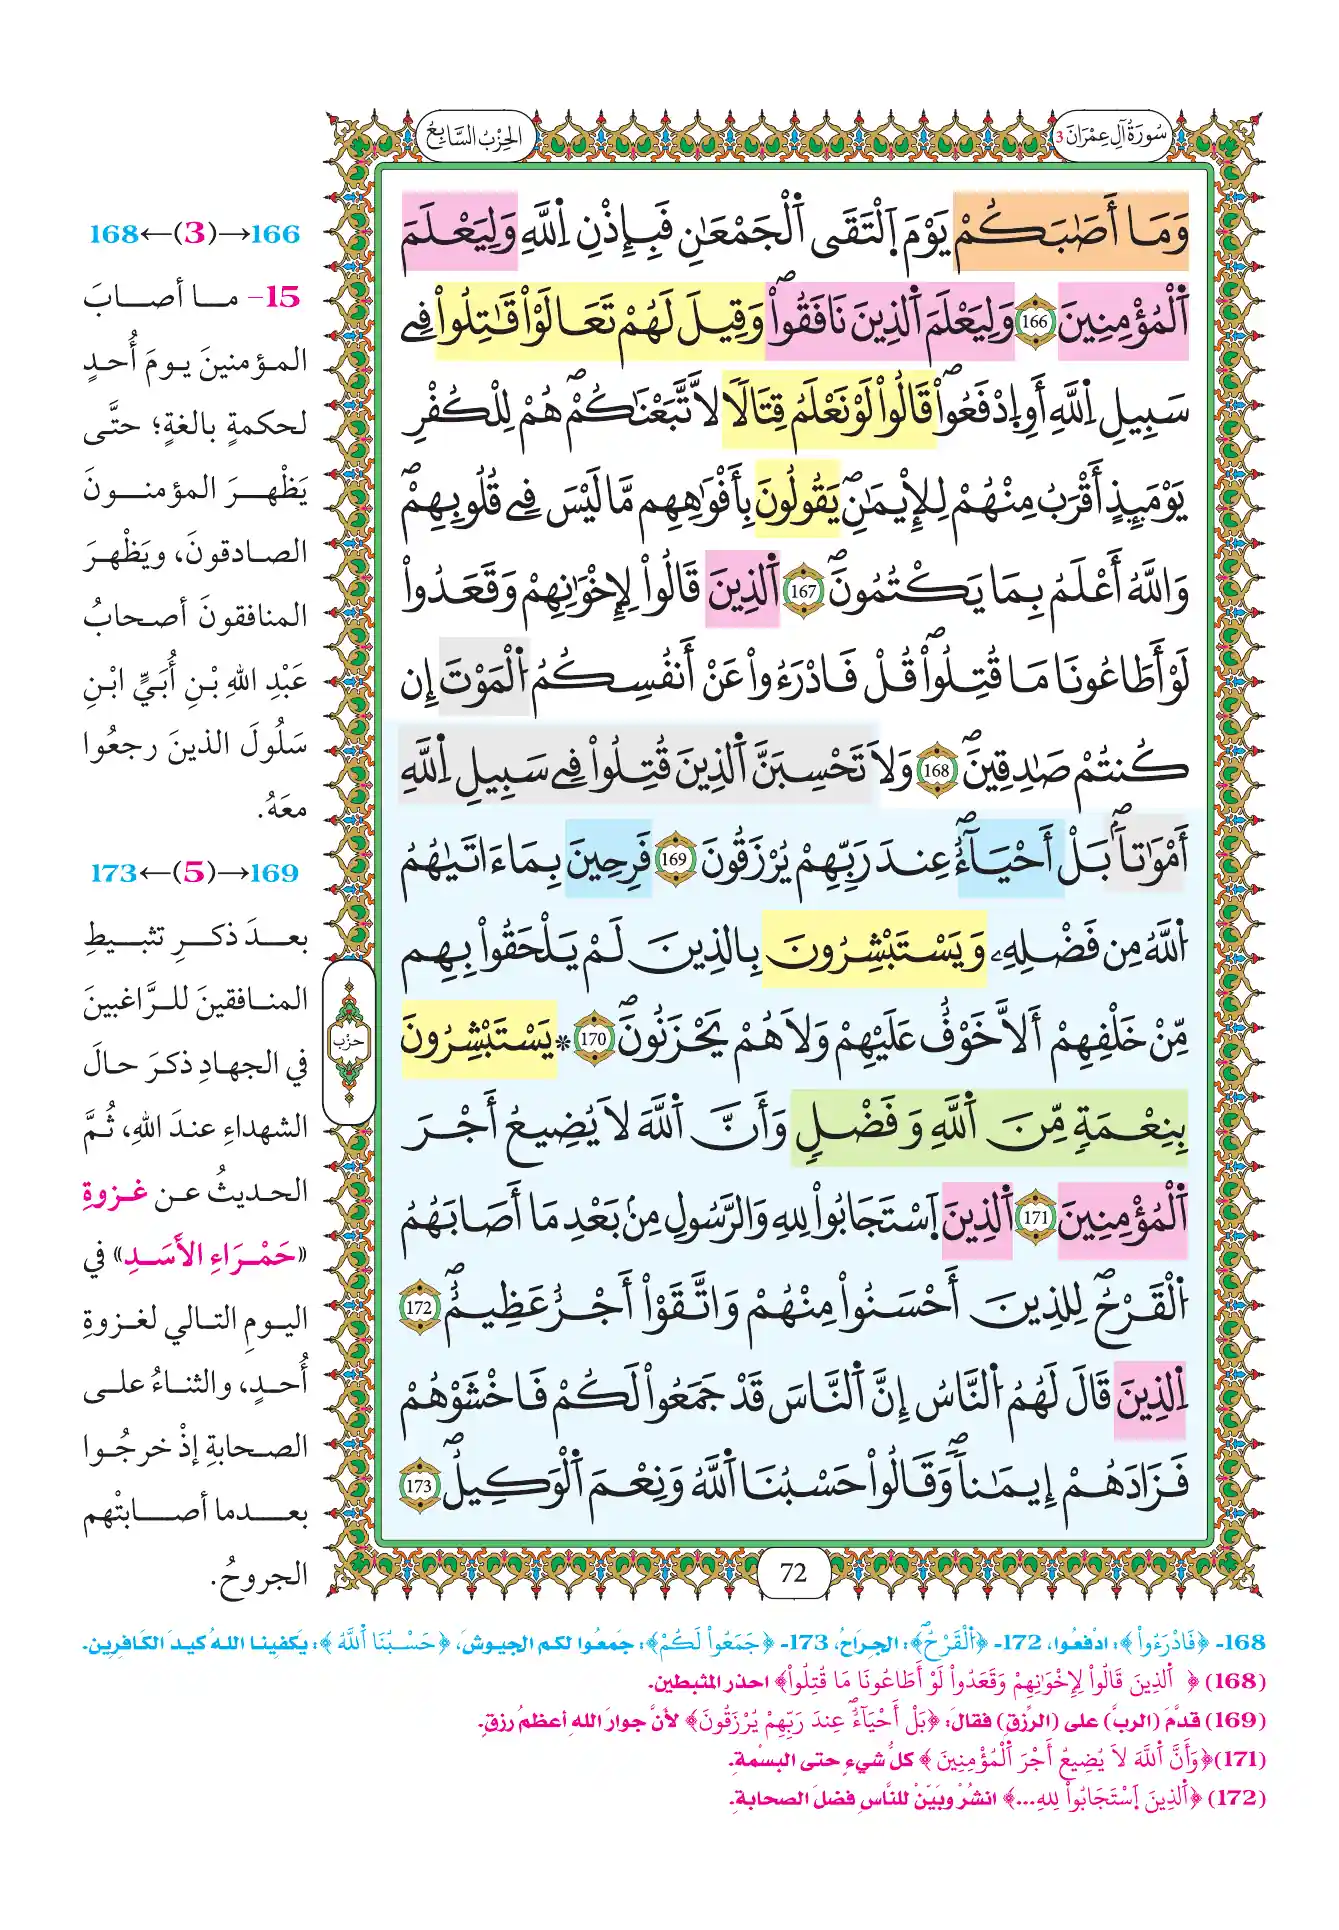 سُورَةُ آلِ عِمْرَانَ 3
الحِزْبُ السَّابِعُ
وَمَا أَصَٰبَكُمْ يَوْمَ اَ۬لْتَقَى اَ۬لْجَمْعَٰنِ فَبِإِذْنِ اِ۬للَّهِ وَلِيَعْلَمَ
اَ۬لْمُؤْمِنِينَ 166 وَلِيَعْلَمَ اَ۬لذِينَ نَافَقُواْۖ وَقِيلَ لَهُمْ تَعَالَوْاْ قَٰتِلُواْ فِے
سَبِيلِ اِ۬للَّهِ أَوِ اِ۪دْفَعُواْۖ قَالُواْ لَوْ نَعْلَمُ قِتَالاٗ لاَّتَّبَعْنَٰكُمْۖ هُمْ لِلْكُفْرِ
يَوْمَئِذٍ أَقْرَبُ مِنْهُمْ لِلِايمَٰنِۖ يَقُولُونَ بِأَفْوَٰهِهِم مَّا لَيْسَ فِے قُلُوبِهِمْۖ
وَاللَّهُ أَعْلَمُ بِمَا يَكْتُمُونَۖ 167 اَ۬لذِينَ قَالُواْ لِإِخْوَٰنِهِمْ وَقَعَدُواْ
لَوْ أَطَاعُونَا مَا قُتِلُواْۖ قُلْ فَادْرَءُواْ عَنْ أَنفُسِكُمُ اُ۬لْمَوْتَ إِن
كُنتُمْ صَٰدِقِينَۖ 168 وَلاَ تَحْسِبَنَّ اَ۬لذِينَ قُتِلُواْ فِے سَبِيلِ اِ۬للَّهِ
أَمْوَٰتاَۢۖ بَلْ أَحْيَآءٌۖ عِندَ رَبِّهِمْ يُرْزَقُونَ 169 فَرِحِينَ بِمَا ءَاتَيٰهُمُ
اُ۬للَّهُ مِن فَضْلِهِۦ وَيَسْتَبْشِرُونَ بِالذِينَ لَمْ يَلْحَقُواْ بِهِم
مِّنْ خَلْفِهِمْ أَلاَّ خَوْفٌ عَلَيْهِمْ وَلاَ هُمْ يَحْزَنُونَۖ 170 * يَسْتَبْشِرُونَ
بِنِعْمَةٍ مِّنَ اَ۬للَّهِ وَفَضْلٍ وَأَنَّ اَ۬للَّهَ لاَ يُضِيعُ أَجْرَ
اَ۬لْمُؤْمِنِينَ 171 اَ۬لذِينَ اَ۪سْتَجَابُواْ لِلهِ وَالرَّسُولِ مِنۢ بَعْدِ مَا أَصَابَهُمُ
اُ۬لْقَرْحُۖ لِلذِينَ أَحْسَنُواْ مِنْهُمْ وَاتَّقَوْاْ أَجْرٌ عَظِيمٌۖ 172
اِ۬لذِينَ قَالَ لَهُمُ اُ۬لنَّاسُ إِنَّ اَ۬لنَّاسَ قَدْ جَمَعُواْ لَكُمْ فَاخْشَوْهُمْ
فَزَادَهُمْ إِيمَٰناٗۖ وَقَالُواْ حَسْبُنَا اَ۬للَّهُ وَنِعْمَ اَ۬لْوَكِيلُۖ 173
72
حزب
166→(3)←168
15- ما أصابَ
المؤمنينَ يومَ أُحدٍ
لحكمةٍ بالغةٍ؛ حتَّى
يَظْهرَ المؤمنونَ
الصادقونَ، ويَظْهرَ
المنافقونَ أصحابُ
عَبْدِ اللهِ بْنِ أُبَيٍّ ابْنِ
سَلُولَ الذينَ رجعُوا
معَهُ.
169→(5)←173
بعدَ ذكرِ تثبيطِ
المنافقينَ للرَّاغبينَ
في الجهادِ ذكرَ حالَ
الشهداءِ عندَ اللهِ، ثُمَّ
الحديثُ عن غزوةِ
«حَمْرَاءِ الأَسَدِ» في
اليومِ التالي لغزوةِ
أُحدٍ، والثناءُ على
الصحابةِ إذْ خرجُوا
بعدما أصابتْهم
الجروحُ.
168- ﴿فَادْرَءُواْ﴾: ادْفعُوا، 172- ﴿اُ۬لْقَرْحُۖ﴾: الجِرَاحُ، 173- ﴿جَمَعُواْ لَكُمْ﴾: جَمعُوا لكم الجيوشَ، ﴿حَسْبُنَا اَ۬للَّهُ﴾: يَكفينا اللهُ كيدَ الكَافرِين.
(168) ﴿اَ۬لذِينَ قَالُواْ لِإِخْوَٰنِهِمْ وَقَعَدُواْ لَوْ أَطَاعُونَا مَا قُتِلُواْ﴾ احذر المثبطين.
(169) قدَّمَ (الربَّ) على (الرِّزقِ) فقالَ: ﴿بَلْ أَحْيَآءٌ عِندَ رَبِّهِمْ يُرْزَقُونَ﴾ لأنَّ جوارَ اللهِ أعظمُ رزقٍ.
(171) ﴿وَأَنَّ اَ۬للَّهَ لاَ يُضِيعُ أَجْرَ اَ۬لْمُؤْمِنِينَ﴾ كلُّ شيءٍ حتى البسْمة.
(172) ﴿اَ۬لذِينَ اَ۪سْتَجَابُواْ لِلهِ...﴾ انشُرْ وبَيِّنْ للنَّاسِ فضلَ الصحابةِ.